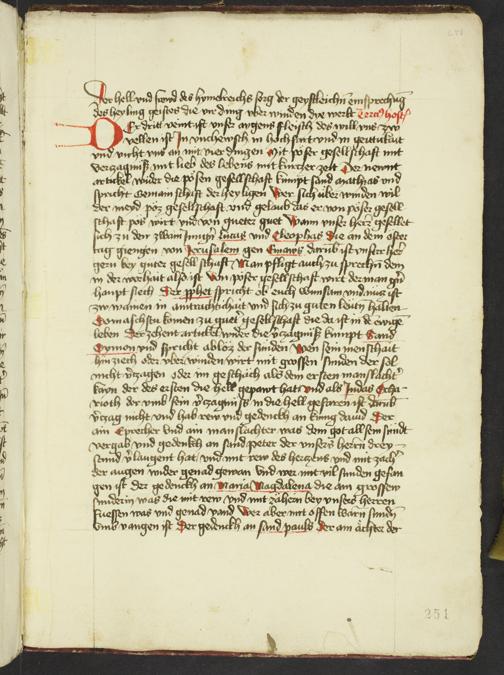 der hell vnd frewd des hymelreichs sorg der geystleichn einsprechug
des heyling geistes die vir ding vber winden die werlt Terci9 host
Der dritt veint ist vnser aygens fleysch des will vns zw
vellen ist In vnchewsch in hochfart vnd in geittikait
vnd vicht vns an mit vier dingen Mit poser gesellschaft mit
verzagnuss mit lieb des lebens mit kurczer zeit Der newnt
artikel wider die posen gesellschaft kumpt sand mathias vnd
spricht Gemainschaft der heyligen Wer sich aber winden wil
der meyd poz gesellschaft vnd gelaub das er von poser gesell
schaft pos wirt vnd von gueter guet Wann vnser herr gesellet
sich zu den zwain jungern Lucas vnd Cleophas die an dem oster
tag giengen von Jerusalem gen Emaws darub ist vnser her
gern bey guter gesellschaft Man pfligt auch zu sprechn dem
in der worhait also ist Von poser gesellschaft wirt der man gn
haupt siech Der pphet spricht Ob euch wunsam vnd nucz ist
zw wanen in antrachtichait vnd sich zu guten lewtn halten
Demnachst kumen zu guet gesellschaft die da ist in de ewige
leben Der zehent artikel wider die vczagnuss kumpt Sand
Symon vnd spricht ablaz der sunden Wen sein menschait
hin ziech oder vber winden wirt mit grossen sunden der sol
nicht vczagen oder im geschach als dem ersten manslacht
kayn der des ersten die hell gepawt hat vnd als Judas Scha
rioth der vmb sein vczagnuss in die hell gefaren ist darub
vczag nicht vnd hab rew vnd gedenck an kung dauid Der
ain Eprecher vnd ain manslachter was dem got all sein sund
vergab vnd gedenkh an sand peter der vnsers herrn drey
stund vlaugent hat vnd mit rew des herczens vnd mit zach
der augen wider genad gewan Vnd wer mit vil sunden gefan
gen ist der gedenck an Maria Magdalena die ain grossew
sunderin was die mit rew vnd mit zahern bey vnsers herren
fuessen was vnd genad vand Wer aber mit offen warn sundn
vmb vangen ist Der gedenck an sand pauls der ain achter der
251